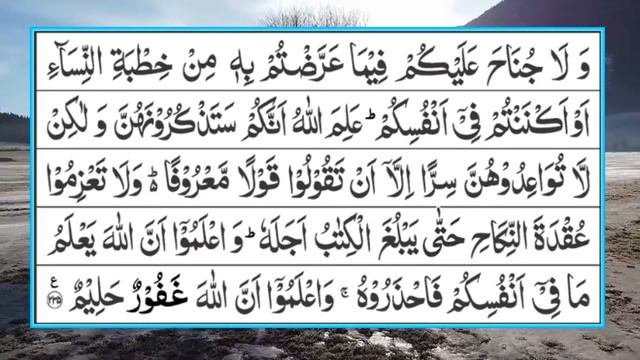 وَ لَا جُنَاحَ عَلَيْكُمْ فِيْمَا عَرَّضْتُمْ بِهٖ مِنْ خِطْبَةِ النِّسَآءِ
اَوْ اَكْنَنْتُمْ فِيْۤ اَنْفُسِكُمْ ؕ عَلِمَ اللّٰهُ اَنَّكُمْ سَتَذْكُرُوْنَهُنَّ وَ لٰكِنْ
لَّا تُوَاعِدُوْهُنَّ سِرًّا اِلَّاۤ اَنْ تَقُوْلُوْا قَوْلًا مَّعْرُوْفًا ؕ۬ وَلَا تَعْزِمُوْا
عُقْدَةَ النِّكَاحِ حَتّٰى يَبْلُغَ الْكِتٰبُ اَجَلَهٗ ؕ وَ اعْلَمُوْۤا اَنَّ اللّٰهَ يَعْلَمُ
مَا فِيْۤ اَنْفُسِكُمْ فَاحْذَرُوْهُ ۚ وَاعْلَمُوْۤا اَنَّ اللّٰهَ غَفُوْرٌ حَلِيْمٌ ﴿۲۳۵﴾ ع